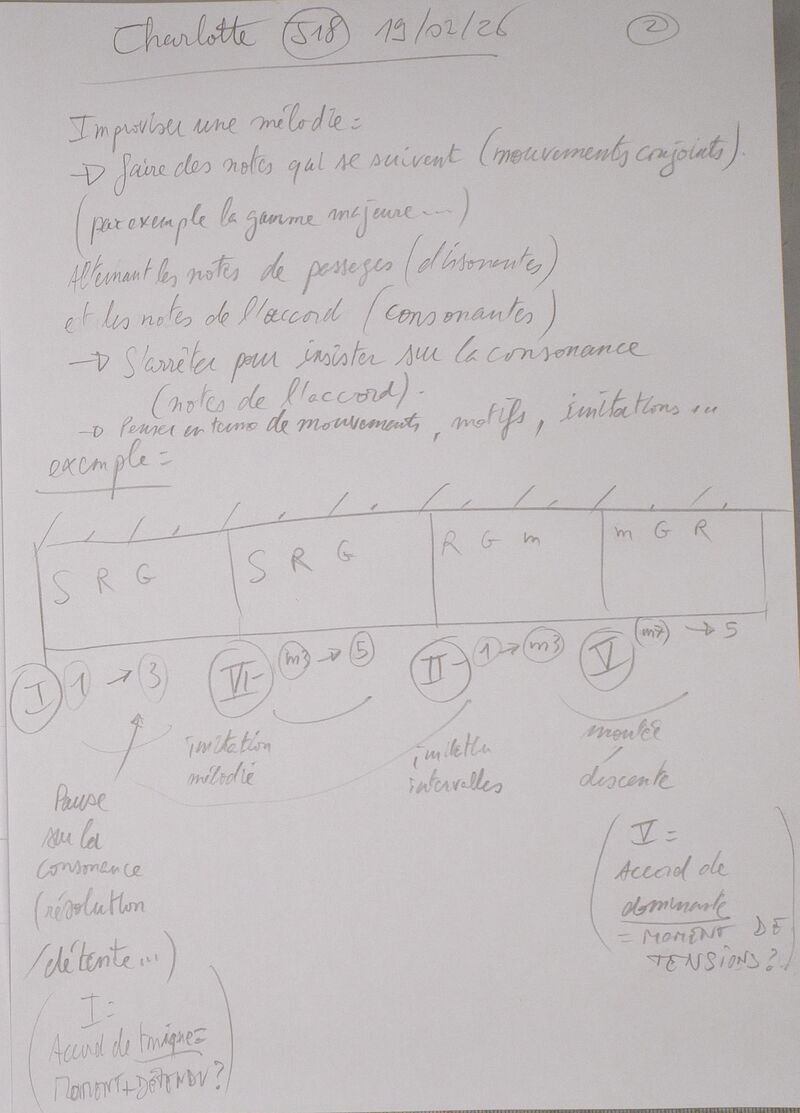 Charlotte S18 19/02/26 2
Improviser une mélodie =
→ faire des notes qui se suivent (mouvements conjoints).
(par exemple la gamme majeure...)
Alternant les notes de passages (dissonantes)
et les notes de l'accord (consonantes)
→ S'arrêter pour insister sur la consonance
(notes de l'accord).
→ Penser en terme de mouvements, motifs, imitations...
exemple =
S R G S R G R G m m G R
I 1 → 3 VI- m3 → 5 II- 1 → m3 V m7 → 5
imitation
mélodie
imitation
intervalles
montée
descente
Pause
sur la
consonance
(résolution
/détente...)
(I =
Accord de tonique =
MOMENT + DÉTENDU ?)
(V =
Accord de
dominante
= MOMENT DE
TENSIONS ?)